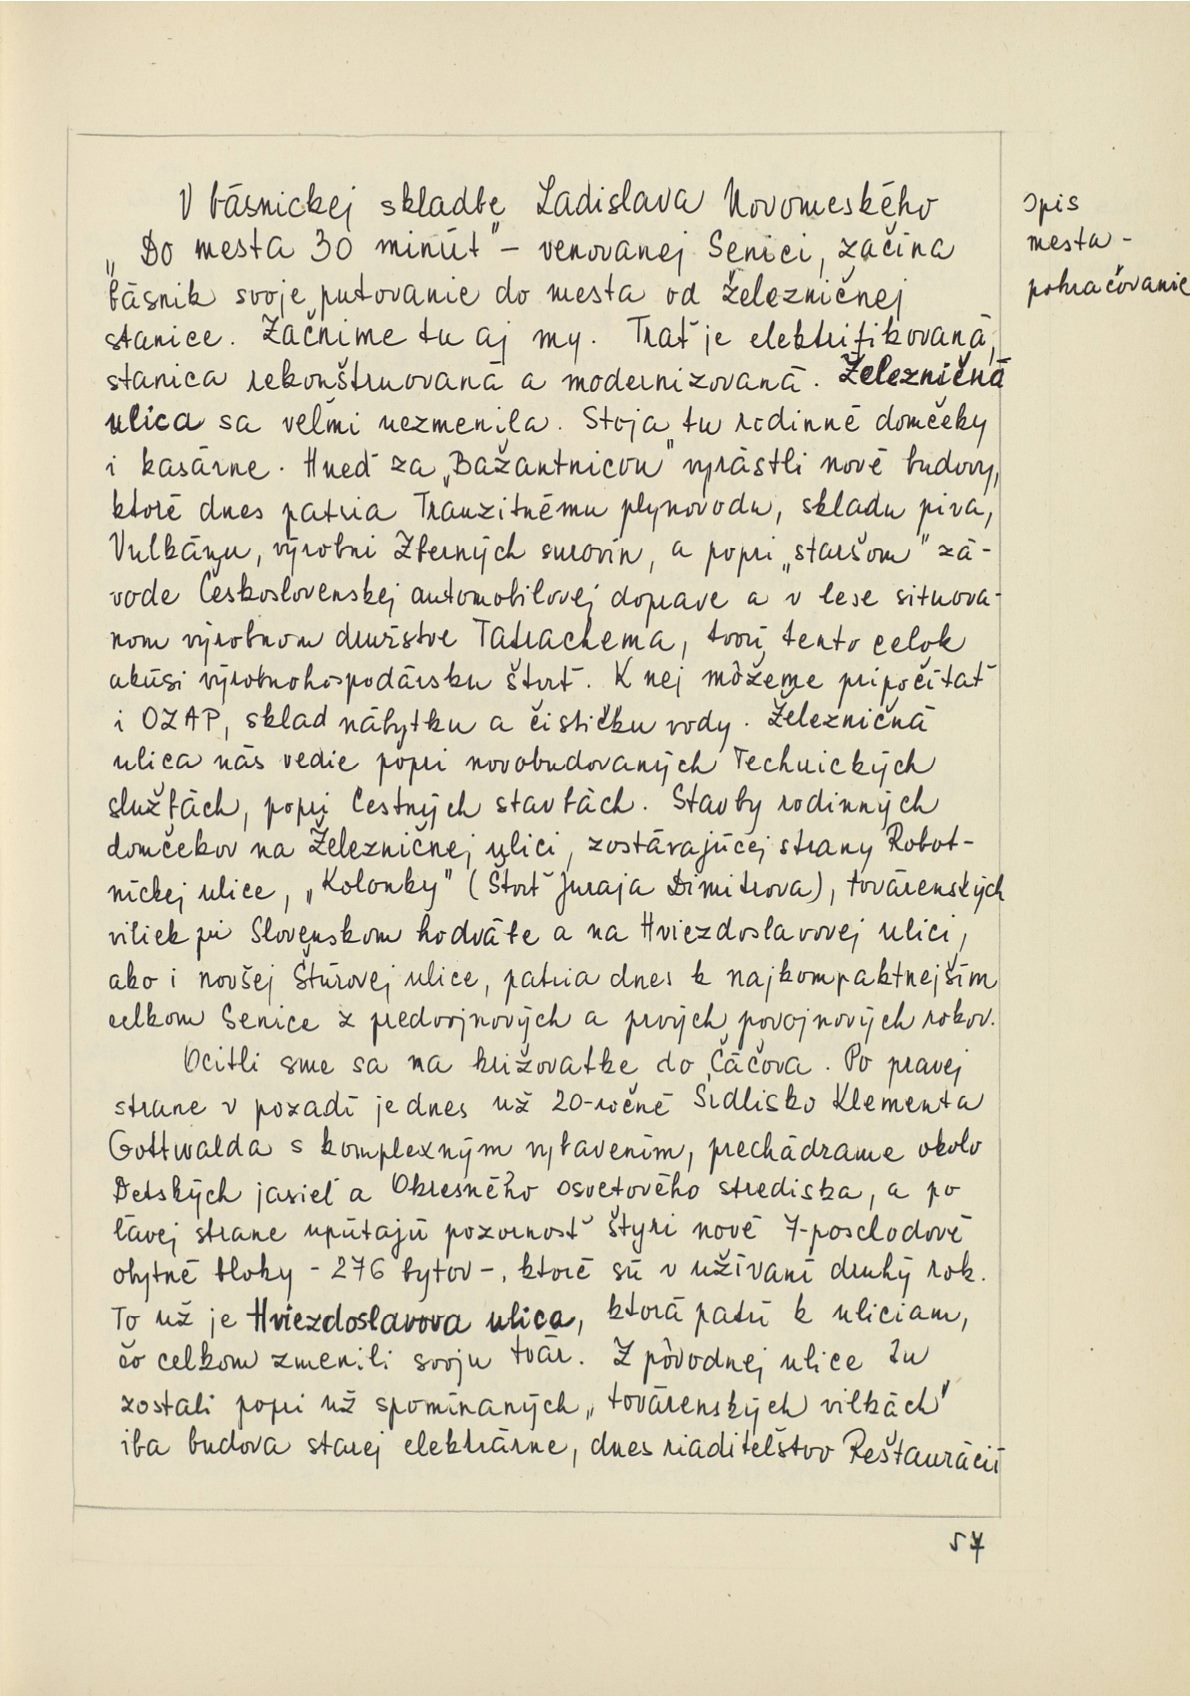 V básnickej skladbe Ladislava Novomeského
„Do mesta 30 minút" – venovanej Senici, začína
básnik svoje putovanie do mesta od železničnej
stanice. Začnime tu aj my. Trať je elektrifikovaná,
stanica rekonštruovaná a modernizovaná. Železničná
ulica sa veľmi nezmenila. Stoja tu rodinné domčeky
i kasárne. Hneď za „Bažantnicou" vyrástli nové budovy,
ktoré dnes patria Tranzitnému plynovodu, skladu piva,
Vulkánu, výrobni Zberných surovín, a popri „staršom" zá-
vode Československej automobilovej doprave a v lese situova-
nom výrobnom družstve Tatrachema, tvorí tento celok
akúsi výrobnohospodársku štvrť. K nej môžeme pripočítať
i OZAP, sklad nábytku a čističku vody. Železničná
ulica nás vedie popri novobudovaných Technických
službách, popri Cestných stavbách. Stavby rodinných
domčekov na Železničnej ulici, zostávajúcej strany Robot-
níckej ulice, „Kolonky" (Štvrť Juraja Dimitrova), továrenských
viliek pri Slovenskom hodvábe a na Hviezdoslavovej ulici,
ako i novšej Štúrovej ulice, patria dnes k najkompaktnejším
celkom Senice z predvojnových a prvých povojnových rokov.
Ocitli sme sa na križovatke do Čáčova. Po pravej
strane v pozadí je dnes už 20-ročné Sídlisko Klementa
Gottwalda s komplexným vybavením, prechádzame okolo
Detských jasieľ a Okresného osvetového strediska, a po
ľavej strane upútajú pozornosť štyri nové 7-poschodové
obytné bloky – 276 bytov –, ktoré sú v užívaní druhý rok.
To už je Hviezdoslavova ulica, ktorá patrí k uliciam,
čo celkom zmenili svoju tvár. Z pôvodnej ulice tu
zostali popri už spomínaných „továrenských vilkách"
iba budova starej elektrárne, dnes riaditeľstvo Reštaurácií
Opis
mesta –
pokračovanie
57